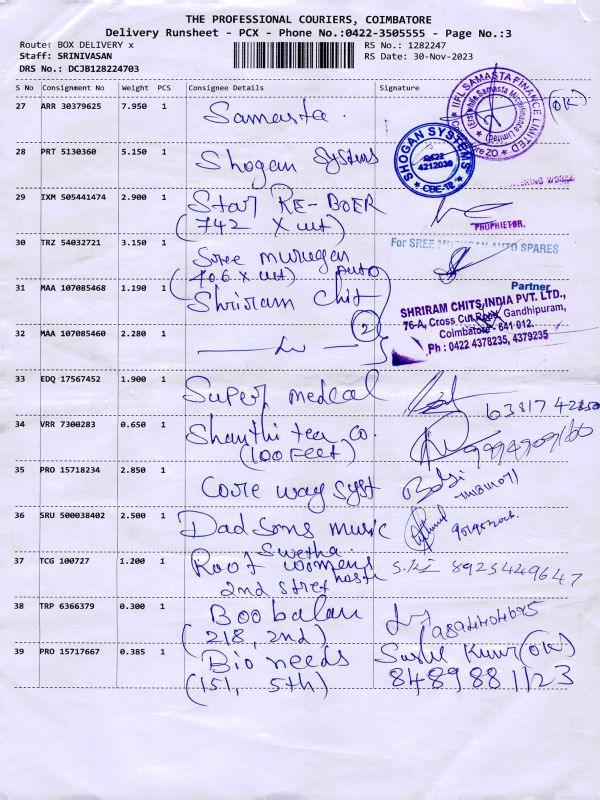 THE PROFESSIONAL COURIERS, COIMBATORE
Delivery Runsheet - PCX - Phone No.:0422-3505555 - Page No.:3
Route: BOX DELIVERY x
RS No.: 1282247
Staff: SRINIVASAN
RS Date: 30-Nov-2023
DRS No.: DCJB128224703
S No Consignment No Weight PCS Consignee Details Signature
27 ARR 30379625 7.950 1 Samasta. (OK)
IIFL SAMASTA FINANCE LIMITED
28 PRT 5130360 5.150 1 Shogan Systems
SHOGAN SYSTEMS
0422
4212030
CBE-12
29 IXM 505441474 2.900 1 Star RE-BOER
(742 X cut)
PROPRIETOR.
30 TRZ 54032721 3.150 1 Sree murugan
(706 X cut) Auto
For SREE MURUGAN AUTO SPARES
Partner
31 MAA 107085468 1.190 1 Shriram Chit
SHRIRAM CHITS INDIA PVT. LTD.,
76-A, Cross Cut Road, Gandhipuram,
Coimbatore - 641 012.
Ph : 0422 4378235, 4379235
32 MAA 107085460 2.280 1 2
33 EDQ 17567452 1.900 1 Super medcal
34 VRR 7300283 0.650 1 Shanthi tea co.
(100 Feet)
35 PRO 15718234 2.850 1 Core way syst
36 SRU 500038402 2.500 1 Dadsons music
37 TCG 100727 1.200 1 Swetha.
Root womens
2nd stret
8925449647
38 TRP 6366379 0.300 1 Boobalan
(218, 2nd)
39 PRO 15717667 0.385 1 Bio needs
(151, 5th)
(OK)
8489881123